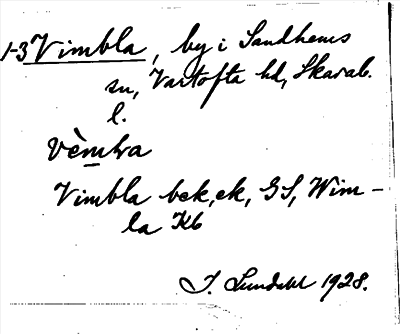 1-3 Vimbla, by i Sandhems
sn, Vartofta hd, Skarab.
l.
vèmbra
Vimbla bek, ek, GS, Wim-
la Kb
I. Lundahl 1928.